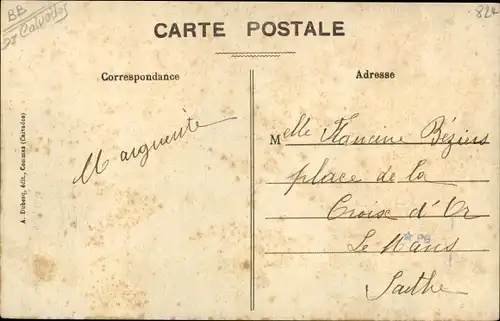 BB
Calvados
822
CARTE POSTALE
Correspondance
Adresse
Marguerite
Melle Francine Béziers
place de la
Croix d'Or
Le Mans
Sarthe
PB
A. Dubosq, édit., Cosmes (Calvados)